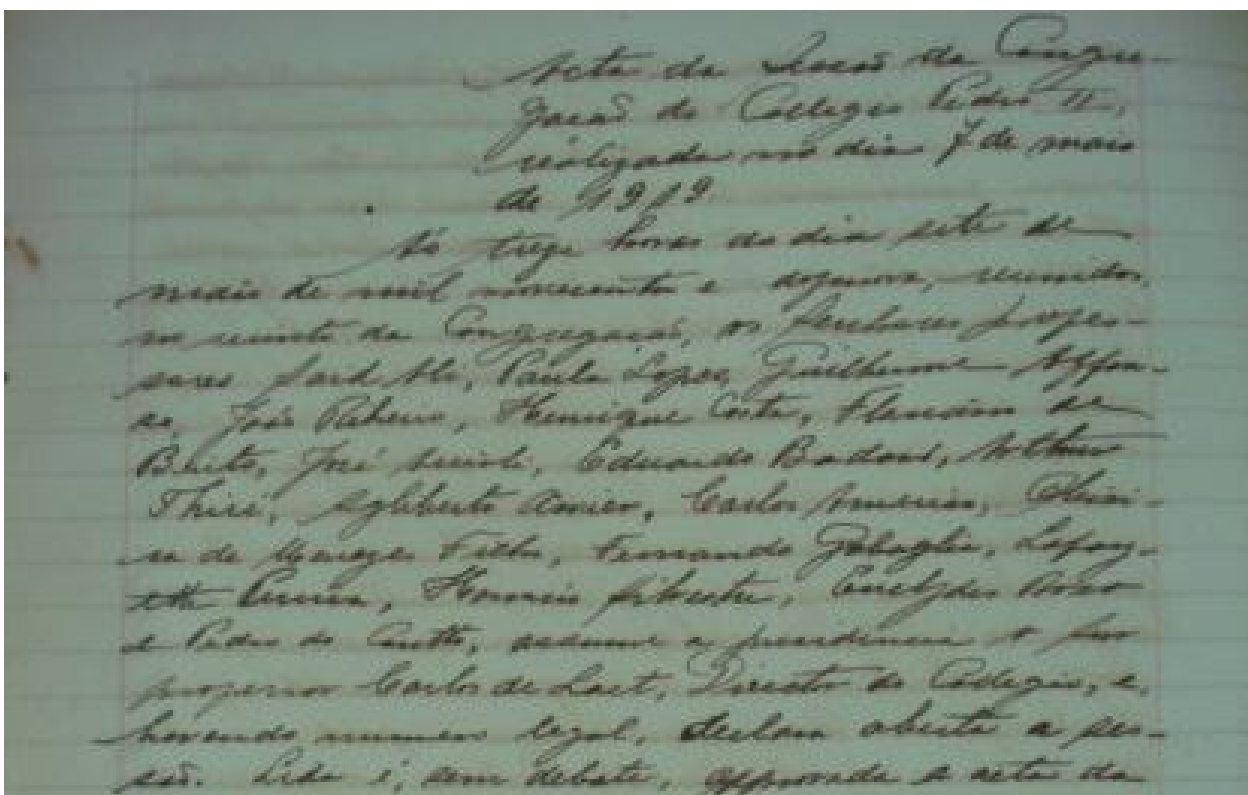 Acta da Sessão da Congre-
gação do Collegio Pedro II,
realizada no dia 7 de maio
de 1919
Ás treze horas do dia sete de
maio de mil novecentos e dezenove, reunidos,
no recinto da Congregação, os senhores profes-
sores Said Ali, Paula Lopes, Guilherme Affon-
so, João Ribeiro, Henrique Costa, Floriano de
Brito, José Accioli, Eduardo Badaró, Arthur
Thiré, Agliberto Xavier, Carlos Americo, Olivei-
ra de Menezes Filho, Fernando Raja Gabaglia, Lafay-
ette Pereira, Honorio Silvestre, Euclydes Roxo
e Pedro do Coutto, assume a presidencia o
professor Carlos de Laet, Director do Collegio, e,
havendo numero legal, declara aberta a ses-
são. Lida é, sem debate, approvada a acta da